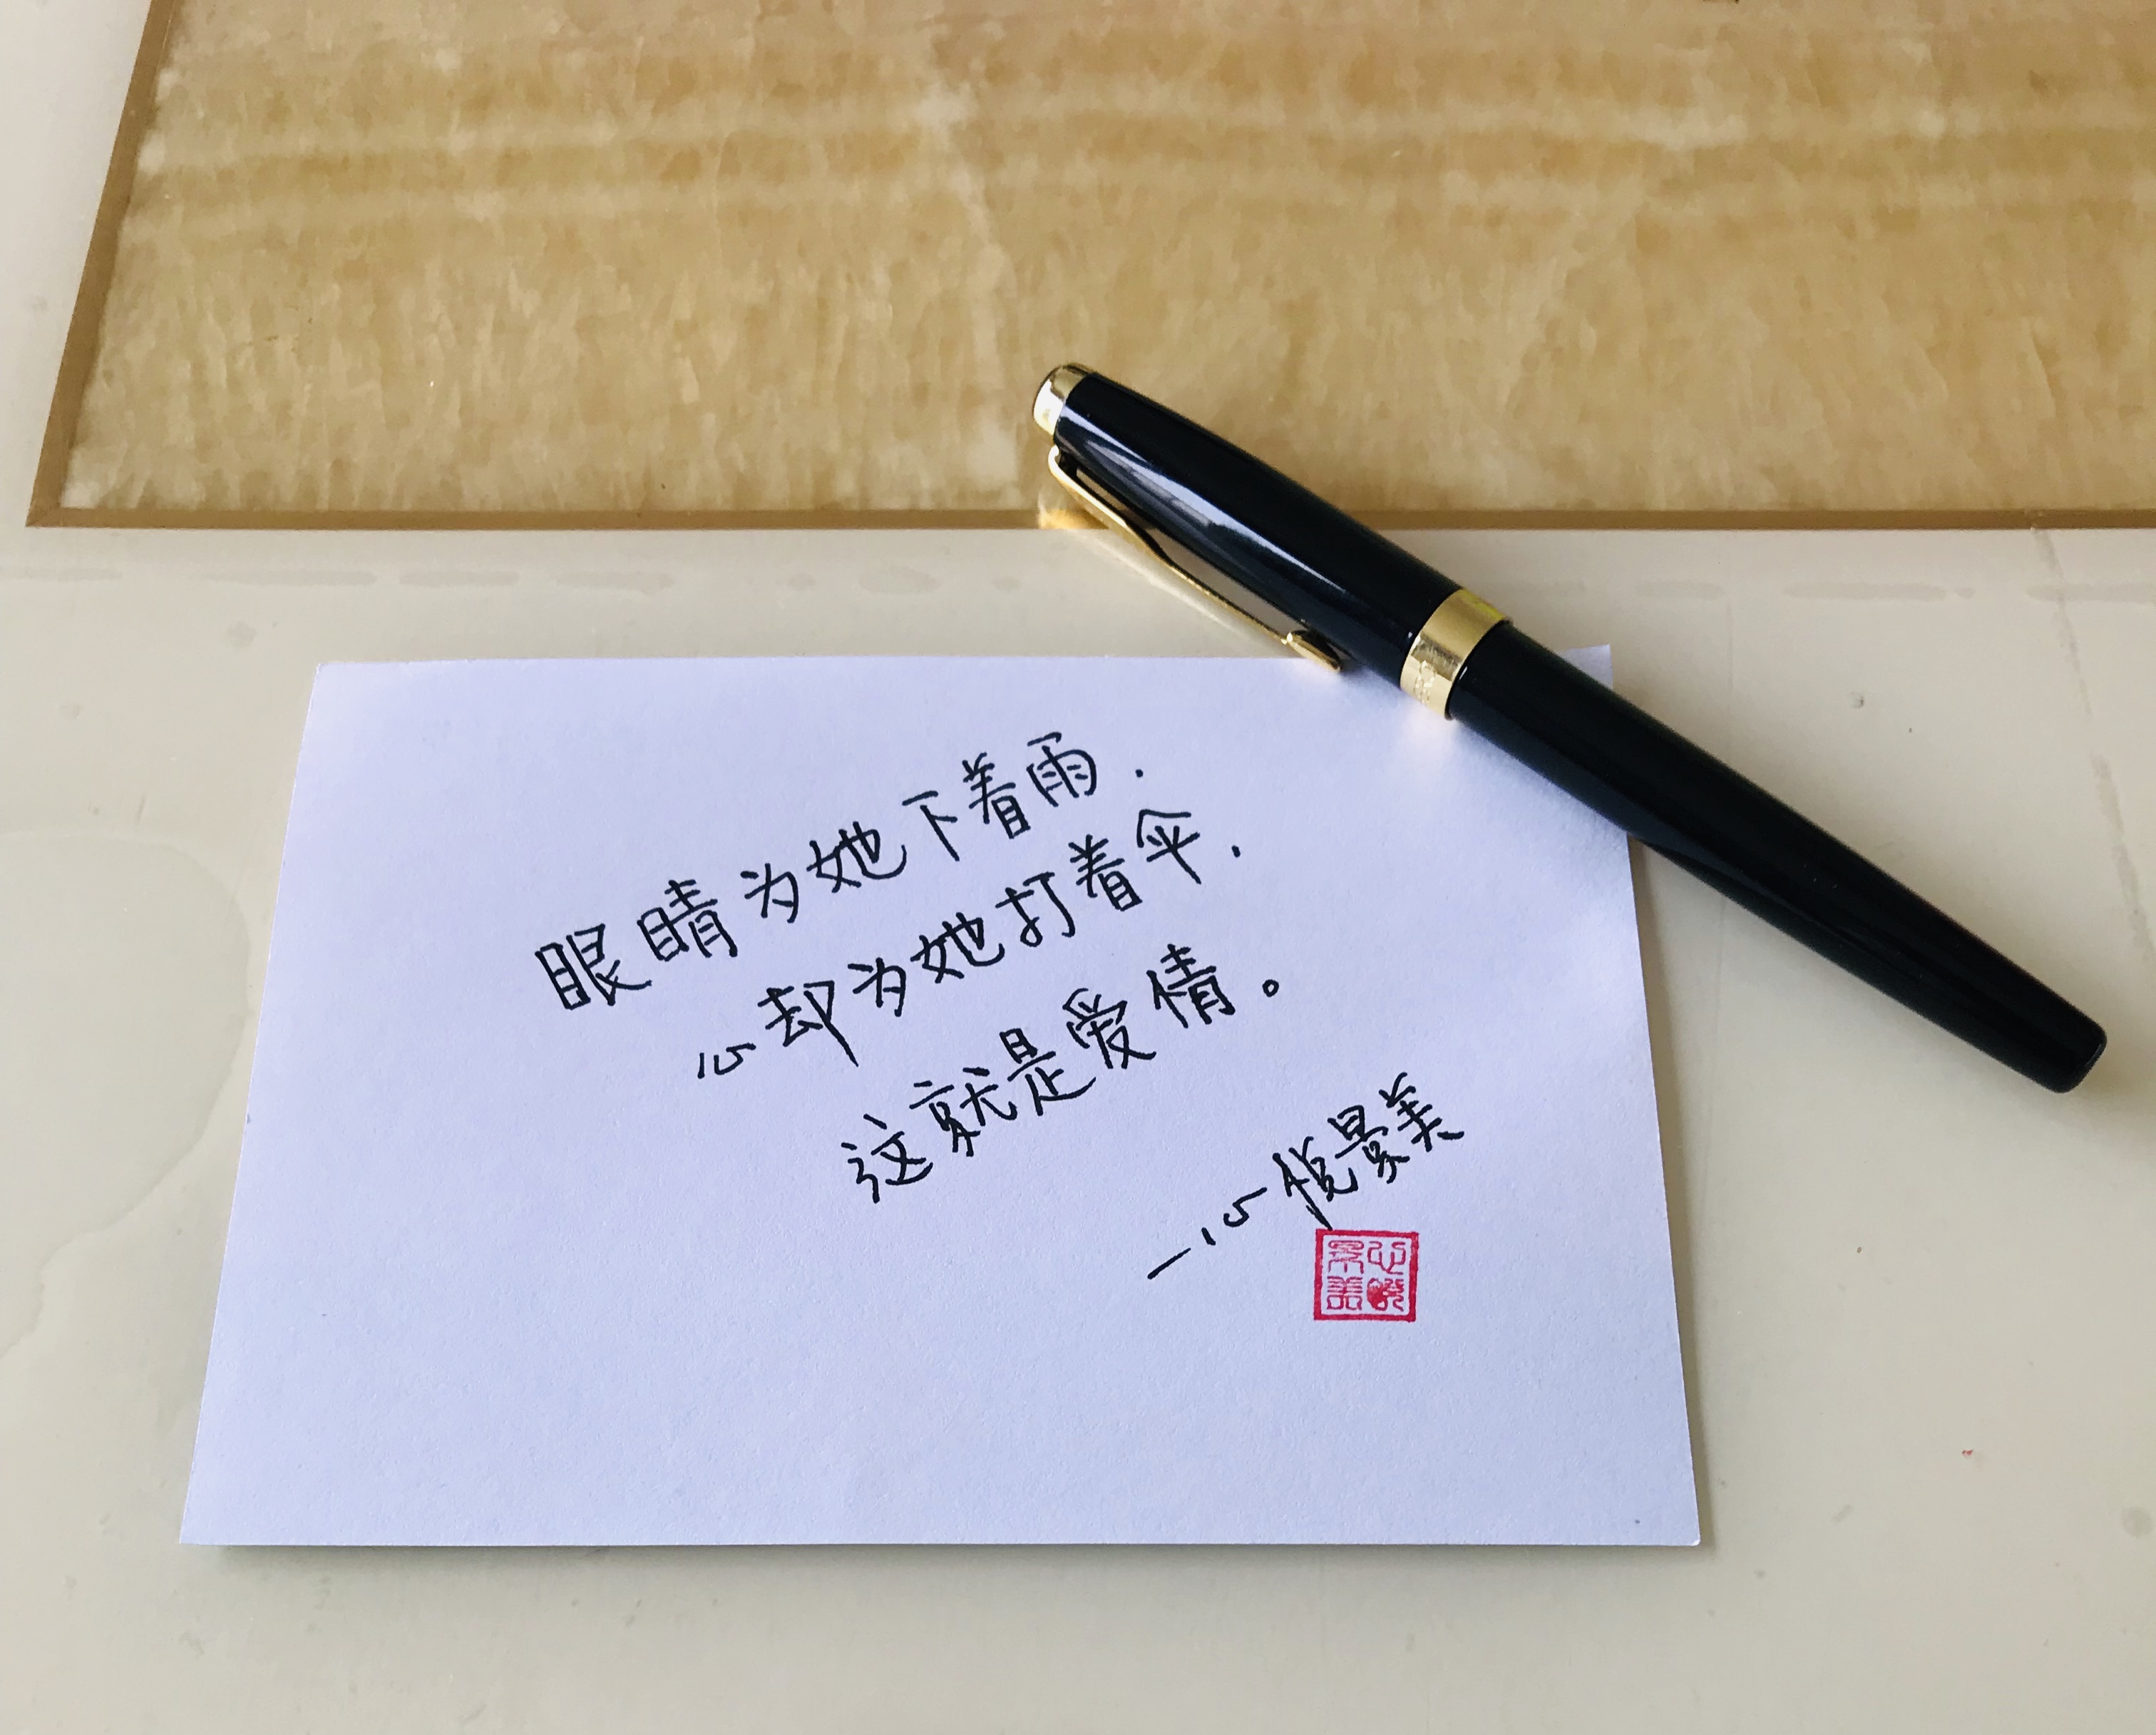 眼睛为她下着雨.
心却为她打着伞.
这就是爱情。
一心悦景美
心悦景美